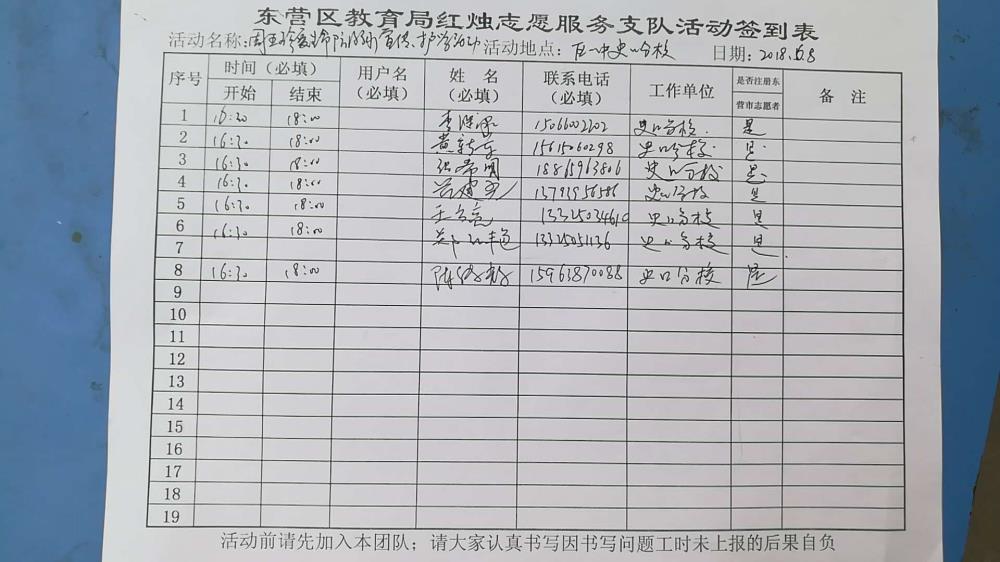 东营区教育局红烛志愿服务支队活动签到表
活动名称: 宣传、护学活动 活动地点: 区一中史口分校 日期: 2018.6.8
序号 时间（必填） 用户名（必填） 姓 名（必填） 联系电话（必填） 工作单位 是否注册东营市志愿者 备 注
开始 结束
1 16:30 18:00 李 15066002202 史口分校. 是
2 16:30 18:00 黄 15615060298 史口分校. 是.
3 16:30 18:00 张希国 18865963806 史口分校 是.
4 16:30 18:00 建 13793956586 史口分校 是
5 16:30 18:00 王 亮 13325034610 史口分校 是
6 16:30 18:00 郑 艳 13325051136 史口分校 是.
7
8 16:30 18:00 陈 15963870088 史口分校 是
9
10
11
12
13
14
15
16
17
18
19
活动前请先加入本团队；请大家认真书写因书写问题工时未上报的后果自负